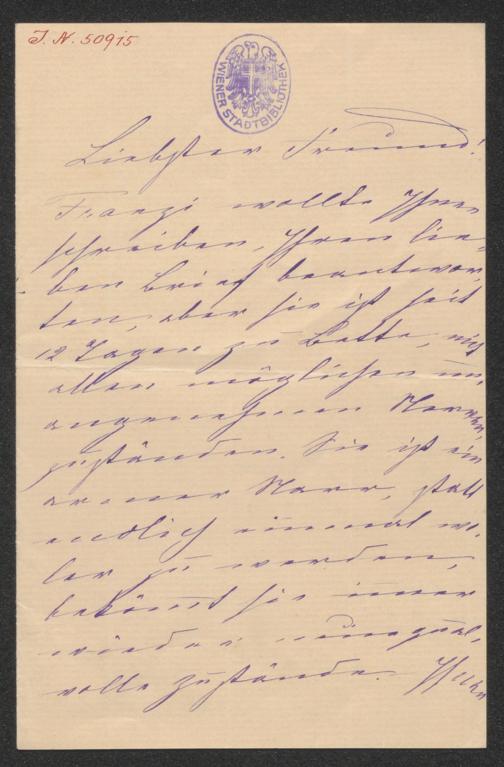 J. N. 50915
WIENER STADTBIBLIOTHEK
Liebster Freund!
Franzi wollte Ihnen
schreiben, Ihren lie-
ben Brief beantwor-
ten, aber sie ist seit
12 Tagen zu Bette, mit
allen möglichen un-
angenehmen Nerven
zuständen. Sie ist ein
armer Narr, statt
endlich einmal wo-
ler zu werden,
bekömt sie imer
wieder neue qual-
volle Zustände. Ihnen